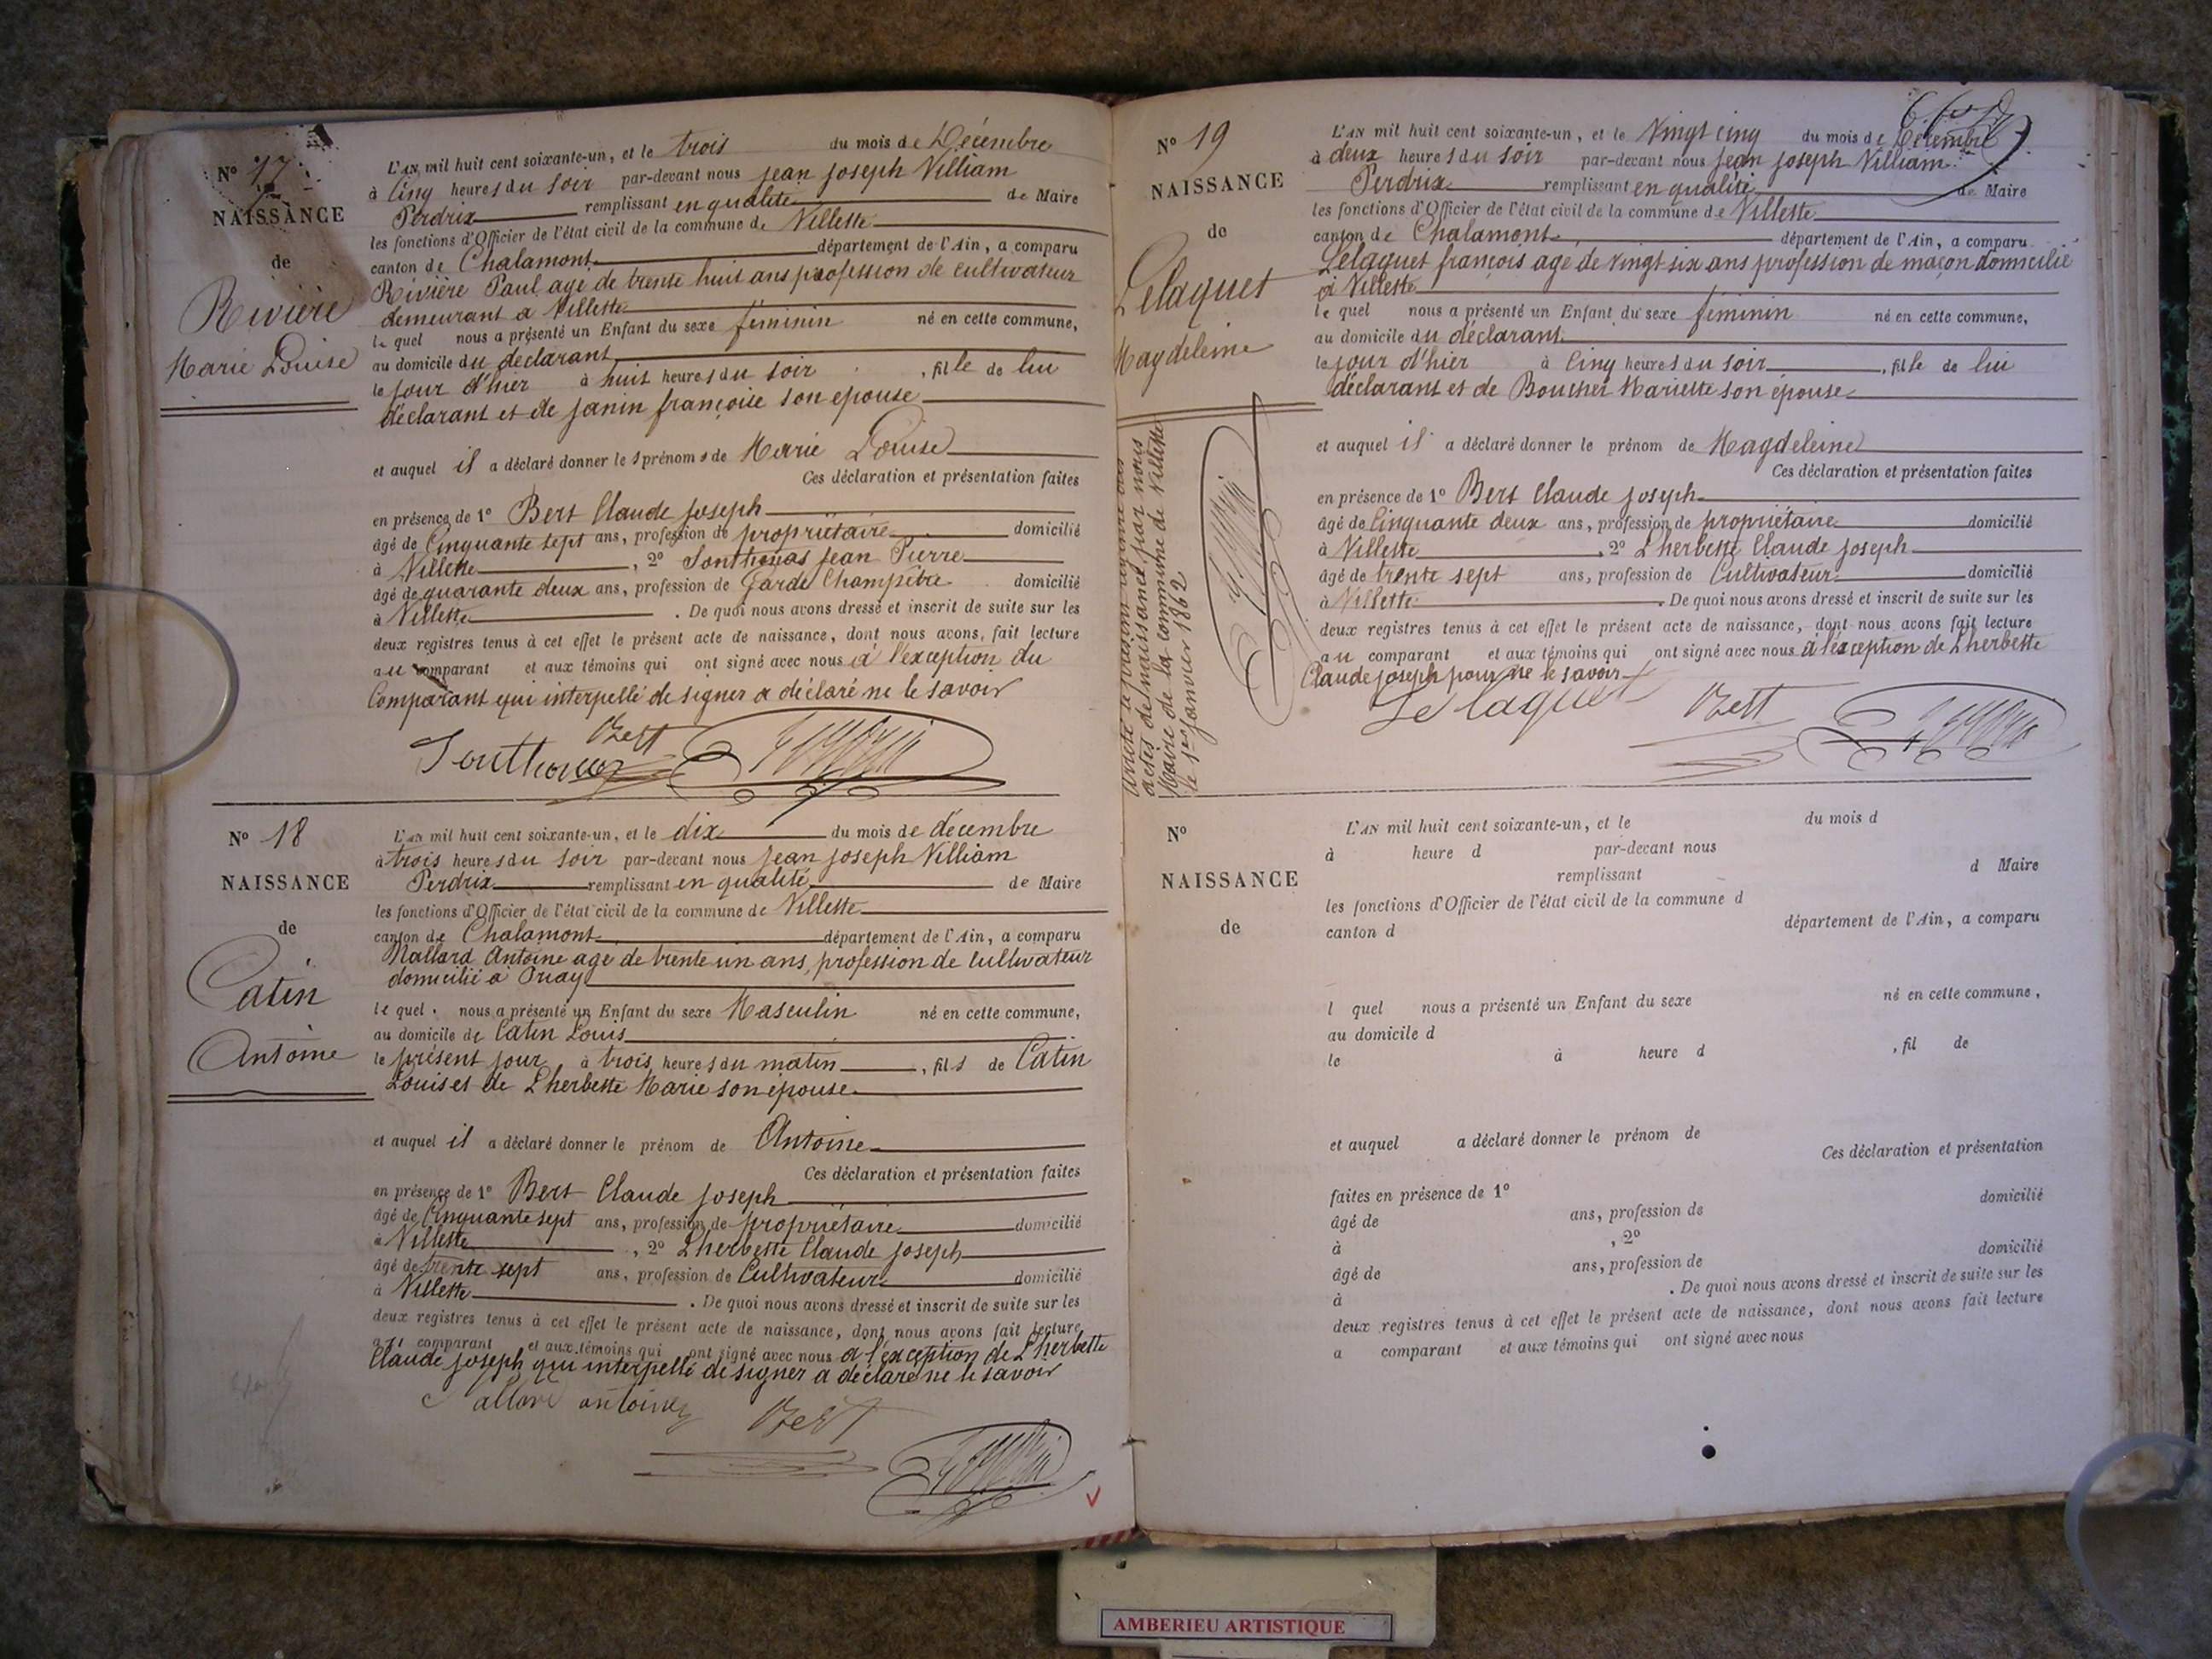 N° 17
NAISSANCE
de
Rivière
Marie Louise
L'AN mil huit cent soixante-un, et le trois du mois de Décembre
à cinq heures du soir par-devant nous jean joseph Villiam
Perdrix remplissant en qualité de Maire
les fonctions d'Officier de l'état civil de la commune de Villette
canton de Chalamont département de l'Ain, a comparu
Rivière Paul agé de trente huit ans profession de cultivateur
demeurant a Villette
le quel nous a présenté un Enfant du sexe féminin né en cette commune,
au domicile du déclarant
le jour d'hier à huit heures du soir , fille de lui
déclarant et de janin françoise son epouse
et auquel il a déclaré donner les prénoms de Marie Louise
Ces déclaration et présentation faites
en présence de 1° Bert Claude joseph
âgé de Cinquante sept ans, profession de propriétaire domicilié
à Villette , 2° Sonthonas jean Pierre
âgé de quarante deux ans, profession de Garde Champêtre domicilié
à Villette . De quoi nous avons dressé et inscrit de suite sur les
deux registres tenus à cet effet le présent acte de naissance, dont nous avons fait lecture
au comparant et aux témoins qui ont signé avec nous à l'exception du
Comparant qui interpellé de signer a déclaré ne le savoir
Bert
Sonthonas
N° 18
NAISSANCE
de
Catin
Antoine
L'AN mil huit cent soixante-un, et le dix du mois de décembre
à trois heures du soir par-devant nous jean joseph Villiam
Perdrix remplissant en qualité de Maire
les fonctions d'Officier de l'état civil de la commune de Villette
canton de Chalamont département de l'Ain, a comparu
Antoine age de trente un ans, profession de Cultivateur
domicilié a
le quel nous a présenté un Enfant du sexe Masculin né en cette commune,
au domicile de Catin Louis
le présent jour à trois heures du matin , fils de Catin
Louis et de Lherbette Marie son épouse
et auquel il a déclaré donner le prénom de Antoine
Ces déclaration et présentation faites
en présence de 1° Bert Claude joseph
âgé de Cinquante sept ans, profession de propriétaire domicilié
à Villette , 2° Lherbette Claude joseph
âgé de trente sept ans, profession de Cultivateur domicilié
à Villette . De quoi nous avons dressé et inscrit de suite sur les
deux registres tenus à cet effet le présent acte de naissance, dont nous avons fait lecture
au comparant et aux témoins qui ont signé avec nous à l'exception de Lherbette
Claude joseph qui interpellé de signer a déclaré ne le savoir
antoine Bert
N° 19
NAISSANCE
de
Lelaquet
Magdeleine
L'AN mil huit cent soixante-un, et le Vingt cinq du mois de Décembre
à deux heures du soir par-devant nous jean joseph Villiam
Perdrix remplissant en qualité de Maire
les fonctions d'Officier de l'état civil de la commune de Villette
canton de Chalamont département de l'Ain, a comparu
Lelaquet françois age de vingt-six ans profession de maçon domicilié
a Villette
le quel nous a présenté un Enfant du sexe féminin né en cette commune,
au domicile du déclarant
le jour d'hier à Cinq heures du soir , fille de lui
déclarant et de Boucher Mariette son épouse
et auquel il a déclaré donner le prénom de Magdeleine
Ces déclaration et présentation faites
en présence de 1° Bert Claude joseph
âgé de Cinquante deux ans, profession de propriétaire domicilié
à Villette , 2° Lherbette Claude joseph
âgé de trente sept ans, profession de Cultivateur domicilié
à Villette . De quoi nous avons dressé et inscrit de suite sur les
deux registres tenus à cet effet le présent acte de naissance, dont nous avons fait lecture
au comparant et aux témoins qui ont signé avec nous à l'exception de Lherbette
Claude joseph pour ne le savoir
Lelaquet Bert
arrêté le présent registre des
actes de naissance par nous
Maire de la commune de Villette
le 1er janvier 1862
N°
NAISSANCE
de
L'AN mil huit cent soixante-un, et le du mois d
à heure d par-devant nous
remplissant d Maire
les fonctions d'Officier de l'état civil de la commune d
canton d département de l'Ain, a comparu
l quel nous a présenté un Enfant du sexe né en cette commune,
au domicile d
le à heure d , fil de
et auquel a déclaré donner le prénom de
Ces déclaration et présentation
faites en présence de 1° domicilié
âgé de ans, profession de
à , 2° domicilié
âgé de ans, profession de
à . De quoi nous avons dressé et inscrit de suite sur les
deux registres tenus à cet effet le présent acte de naissance, dont nous avons fait lecture
a comparant et aux témoins qui ont signé avec nous
AMBERIEU ARTISTIQUE